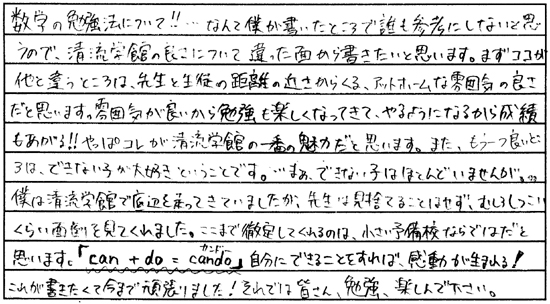 数学の勉強法について!!…なんて僕が書いたところで誰も参考にしないと思
うので、清流学館の良さについて違った面から書きたいと思います。まずココが
他と違うところは、先生と生徒の距離の近さからくる、アットホームな雰囲気の良さ
だと思います。雰囲気が良いから勉強も楽しくなってきて、やるようになるから成績
もあがる!!やっぱコレが清流学館の一番の魅力だと思います。また、もう一つ良いとこ
ろは、できない子が大好きということです。…まぁ、できない子はほとんどいませんが。…
僕は清流学館で底辺を走ってきていましたが、先生は見捨てることはせず、むしろしつこい
くらい面倒を見てくれました。ここまで徹底してくれるのは、小さい予備校ならではだと
思います。「can + do = cando」自分にできることをすれば、感動が生まれる!
カンドー
これが書きたくて今まで頑張りました!それでは皆さん、勉強、楽しんで下さい。